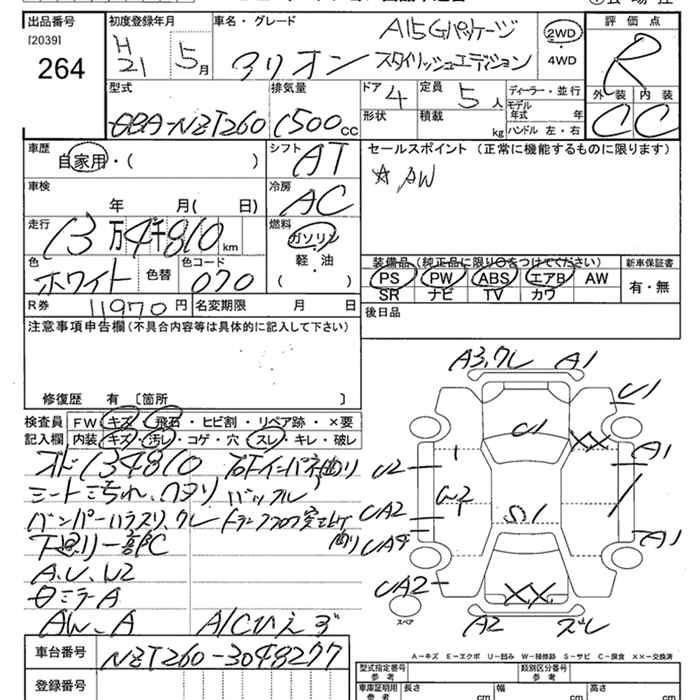 出品番号
[2039]
264
初度登録年月
H
21
5月
車名・グレード
アリオン
A15 Gパッケージ
スタイリッシュエディション
2WD
・
4WD
評価点
R
外装 内装
C C
型式
DBA-NZT260
排気量
1500cc
ドア
4
定員
5人
形状
積載
kg
ディーラー・並行
モデル
年式 年
ハンドル 左・右
車歴
自家用・( )
シフト
AT
セールスポイント(正常に機能するものに限ります)
☆AW
車検
年 月( 日)
冷房
AC
走行
13万4千810km
燃料
ガソリン
軽・油
( )
色
ホワイト
色替
色コード
070
装備品(純正品に限り○をつけてください)
PS PW ABS エアB AW
SR ナビ TV カワ
新車保証書
有・無
R券 11970円
名変期限 月 日
後日品
注意事項申告欄(不具合内容等は具体的に記入して下さい)
修復歴 有 〔箇所 〕
検査員
記入欄
FW キズ・飛石・ヒビ割・リペア跡・×要
内装 キズ・汚レ・コゲ・穴・スレ・キレ・破レ
オド134810
シート汚れ、ヘタリ
バックル
バンパーハラスリ、ワレ
トランクフロア突上げ
曲り
下廻り一部C
A.U.W2
ミラーA
AW、A
A/Cひえず
A3,ワレ
A1
U1
U1
XX
A1
U2
W2
UA2
S1
A1
UA2
XX
A2
ズレ
スペア
A−キズ E−エクボ U−凹み W−補修跡 S−サビ C−腐食 ××−交換済
車台番号
NZT260-3048277
登録番号
型式指定番号
参考
類別区分番号
参考
車庫証明用
参考
長さ cm
幅 cm
高さ cm